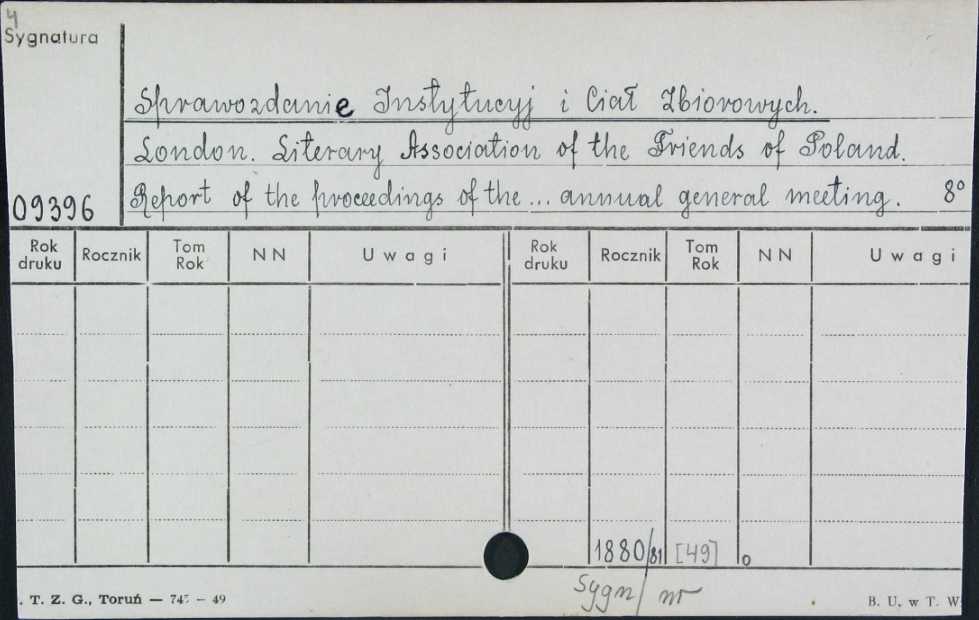 4
Sygnatura
Sprawozdanie Instytucyj i Ciał Zbiorowych.
London. Literary Association of the Friends of Poland.
09396 Report of the proceedings of the ... annual general meeting. 8°
Rok druku Rocznik Tom Rok NN Uwagi Rok druku Rocznik Tom Rok NN Uwagi
1880/81 [49] o
Sygn/ nr
. T. Z. G., Toruń — 745 — 49 B. U. w T. W